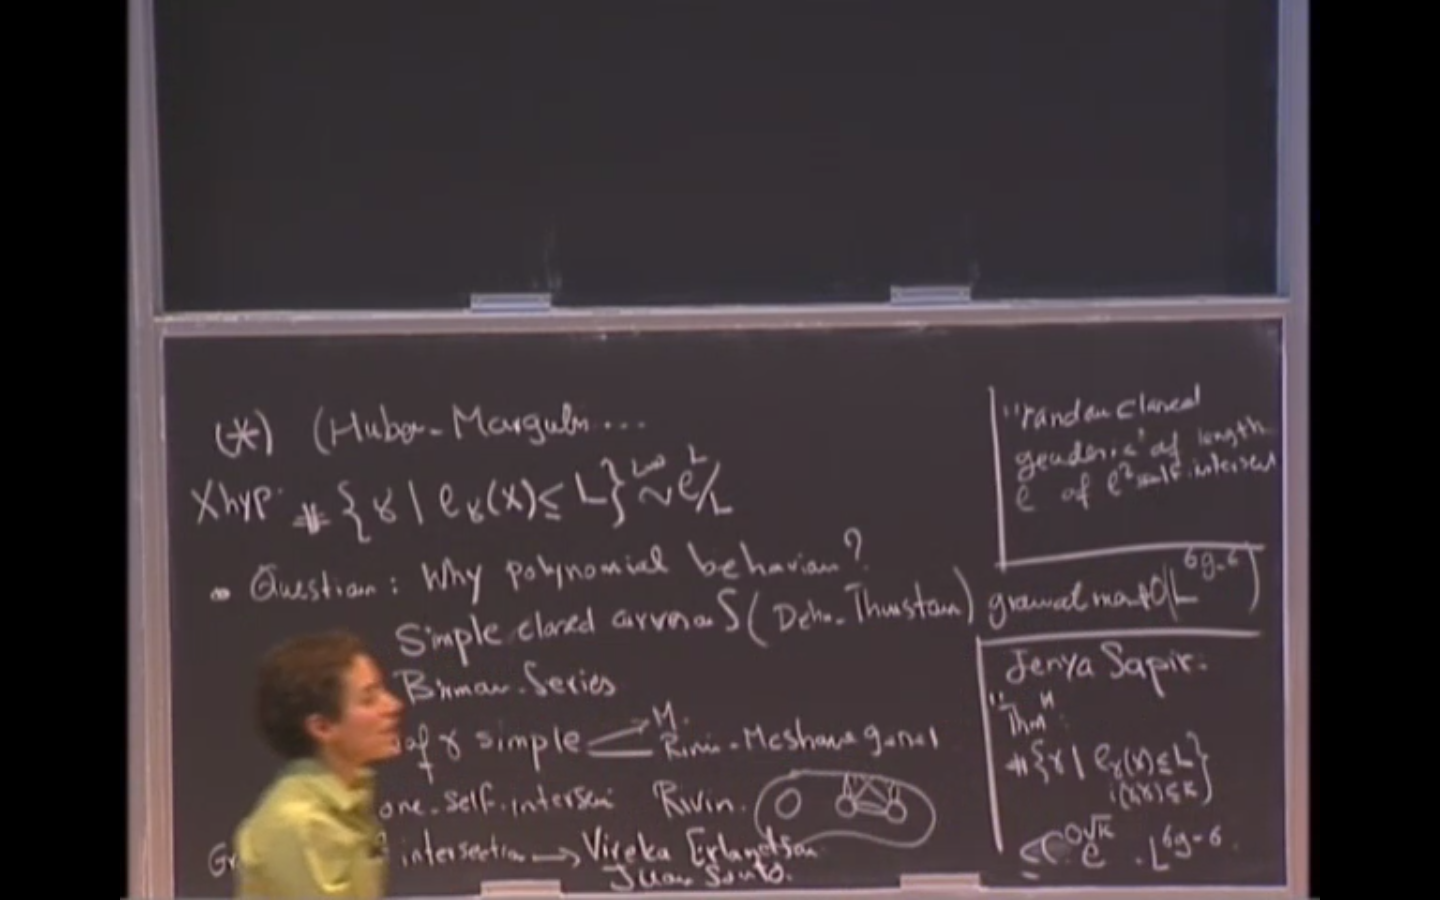 (*) (Huber-Margulis....
X hyp: #{γ | ℓ_γ(X) ≤ L} ~^{L→∞} e^L/L
Question: Why polynomial behaviour?
Simple closed curves S (Dehn-Thurston) growth O(L^{6g-6})
Birman-Series
of γ simple M.
Rivin-McShane genus 1
one-self-intersec Rivin.
intersection → Viveka Erlandsson
Juan Souto.
"random closed
geodesic" of length
ℓ ℓ² self-intersect
Jenya Sapir:
"Thm":
#{γ | ℓ_γ(X) ≤ L
i(γ,γ) ≤ K}
≤ C e^{O√K} . L^{6g-6}.